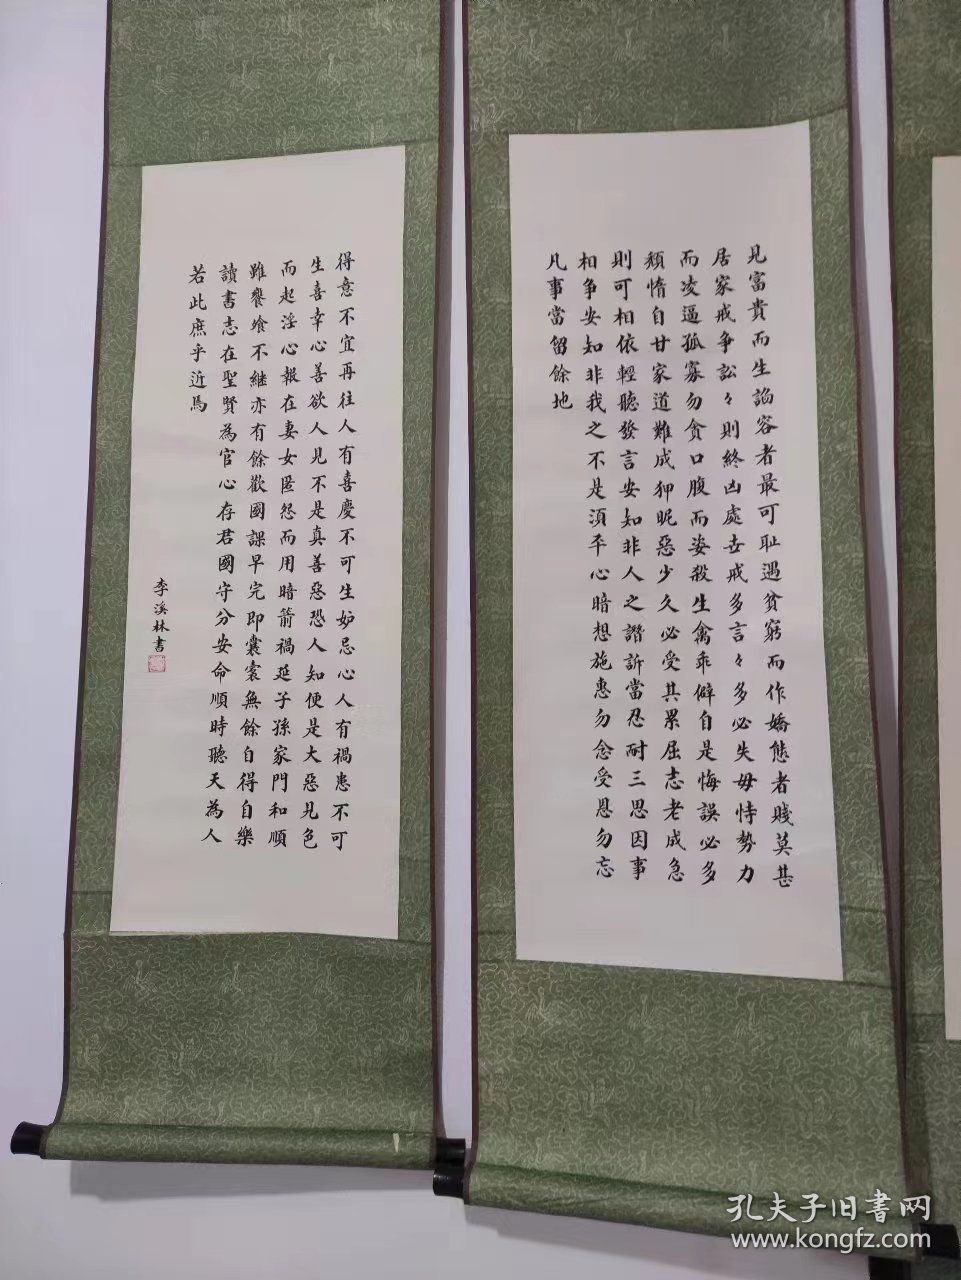 見富貴而生諂容者最可耻遇貧窮而作嬌態者賤莫甚
居家戒争訟々則終凶處世戒多言々多必失毋恃勢力
而凌逼孤寡勿貪口腹而恣殺生禽乖僻自是悔誤必多
頹惰自甘家道難成狎昵惡少久必受其累屈志老成急
則可相依輕聽發言安知非人之譖訴當忍耐三思因事
相争安知非我之不是須平心暗想施惠勿念受恩勿忘
凡事當留餘地
得意不宜再往人有喜慶不可生妒忌心人有禍患不可
生喜幸心善欲人見不是真善惡恐人知便是大惡見色
而起淫心報在妻女匿怨而用暗箭禍延子孫家門和順
雖饔飧不繼亦有餘歡國課早完即囊橐無餘自得自樂
讀書志在聖賢為官心存君國守分安命順時聽天為人
若此庶乎近焉
李溪林書
孔夫子旧書网
www.kongfz.com